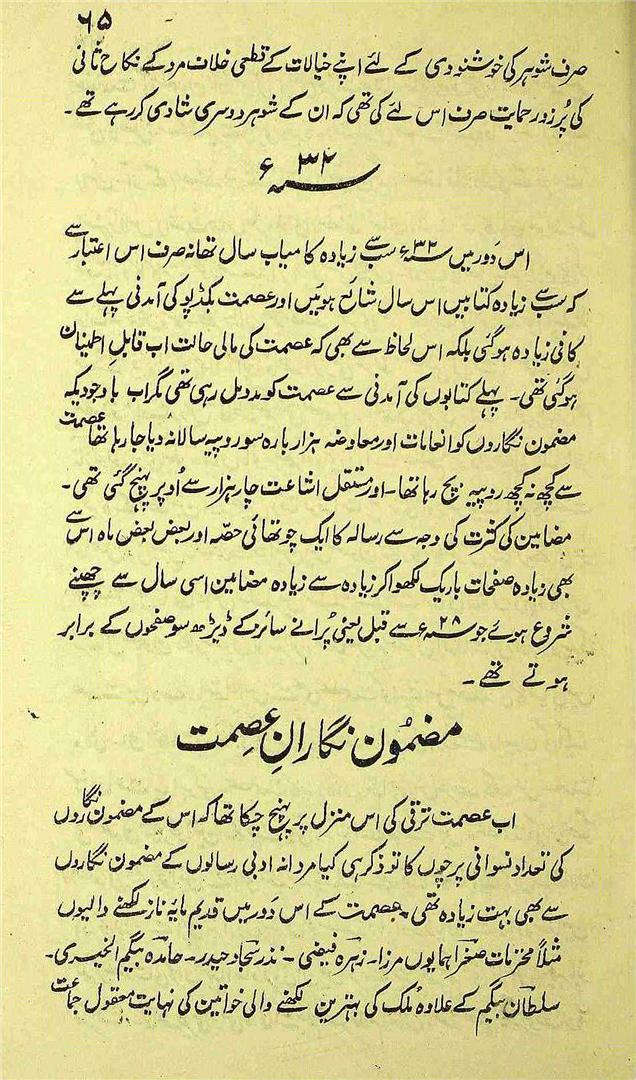 ۶۵
صرف شوہر کی خوشنودی کے لئے اپنے خیالات کے قطعی خلاف مرد کے نکاح ثانی
کی پُر زور حمایت صرف اس لئے کی تھی کہ ان کے شوہر دوسری شادی کر رہے تھے۔
۳۲ سنہ ء
اس دَور میں ۳۲ سنہ ء سب سے زیادہ کامیاب سال تھا نہ صرف اس اعتبار سے
کہ سب سے زیادہ کتابیں اس سال شائع ہوئیں اور عصمت بکڈپو کی آمدنی پہلے سے
کافی زیادہ ہو گئی بلکہ اس لحاظ سے بھی کہ عصمت کی مالی حالت اب قابلِ اطمینان
ہو گئی تھی۔ پہلے کتابوں کی آمدنی سے عصمت کو مدد مل رہی تھی مگر اب باوجودیکہ
مضمون نگاروں کو انعامات اور معاوضہ ہزار بارہ سو روپیہ سالانہ دیا جا رہا تھا عصمت
سے کچھ نہ کچھ روپیہ بچ رہا تھا۔ اور مستقل اشاعت چار ہزار سے اُوپر پہنچ گئی تھی۔
مضامین کی کثرت کی وجہ سے رسالہ کا ایک چوتھائی حصّہ اور بعض بعض ماہ اس سے
بھی زیادہ صفحات باریک لکھوا کر زیادہ سے زیادہ مضامین اسی سال سے چھپنے
شروع ہوئے جو ۲۸ سنہ ء سے قبل یعنی پُرانے سائز کے ڈیڑھ سو صفحوں کے برابر
ہوتے تھے۔
مضمُون نگارانِ عصمت
اب عصمت ترقی کی اس منزل پر پہنچ چکا تھا کہ اس کے مضمون نگاروں
کی تعداد نسوانی پرچوں کا تو ذکر ہی کیا مردانہ ادبی رسالوں کے مضمون نگاروں
سے بھی بہت زیادہ تھی۔ عصمت کے اس دَور میں قدیم مایۂ ناز لکھنے والیوں
مثلاً محترمات صغرا ہمایوں مرزا۔ زہرہ فیضی۔ نذر سجاد حیدر۔ حامدہ بیگم الخیری۔
سلطان بیگم کے علاوہ مُلک کی بہترین لکھنے والی خواتین کی نہایت معقول جماعت